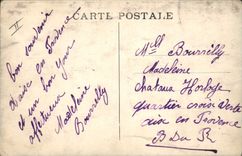 CARTE POSTALE
bon souvenir
d'aix en Provence
et un bon jour
affectueux
Madeleine
Bourrelly
Mlle Bourrelly
Madeleine
quartier croix Verte
aix en Provence
B Du R